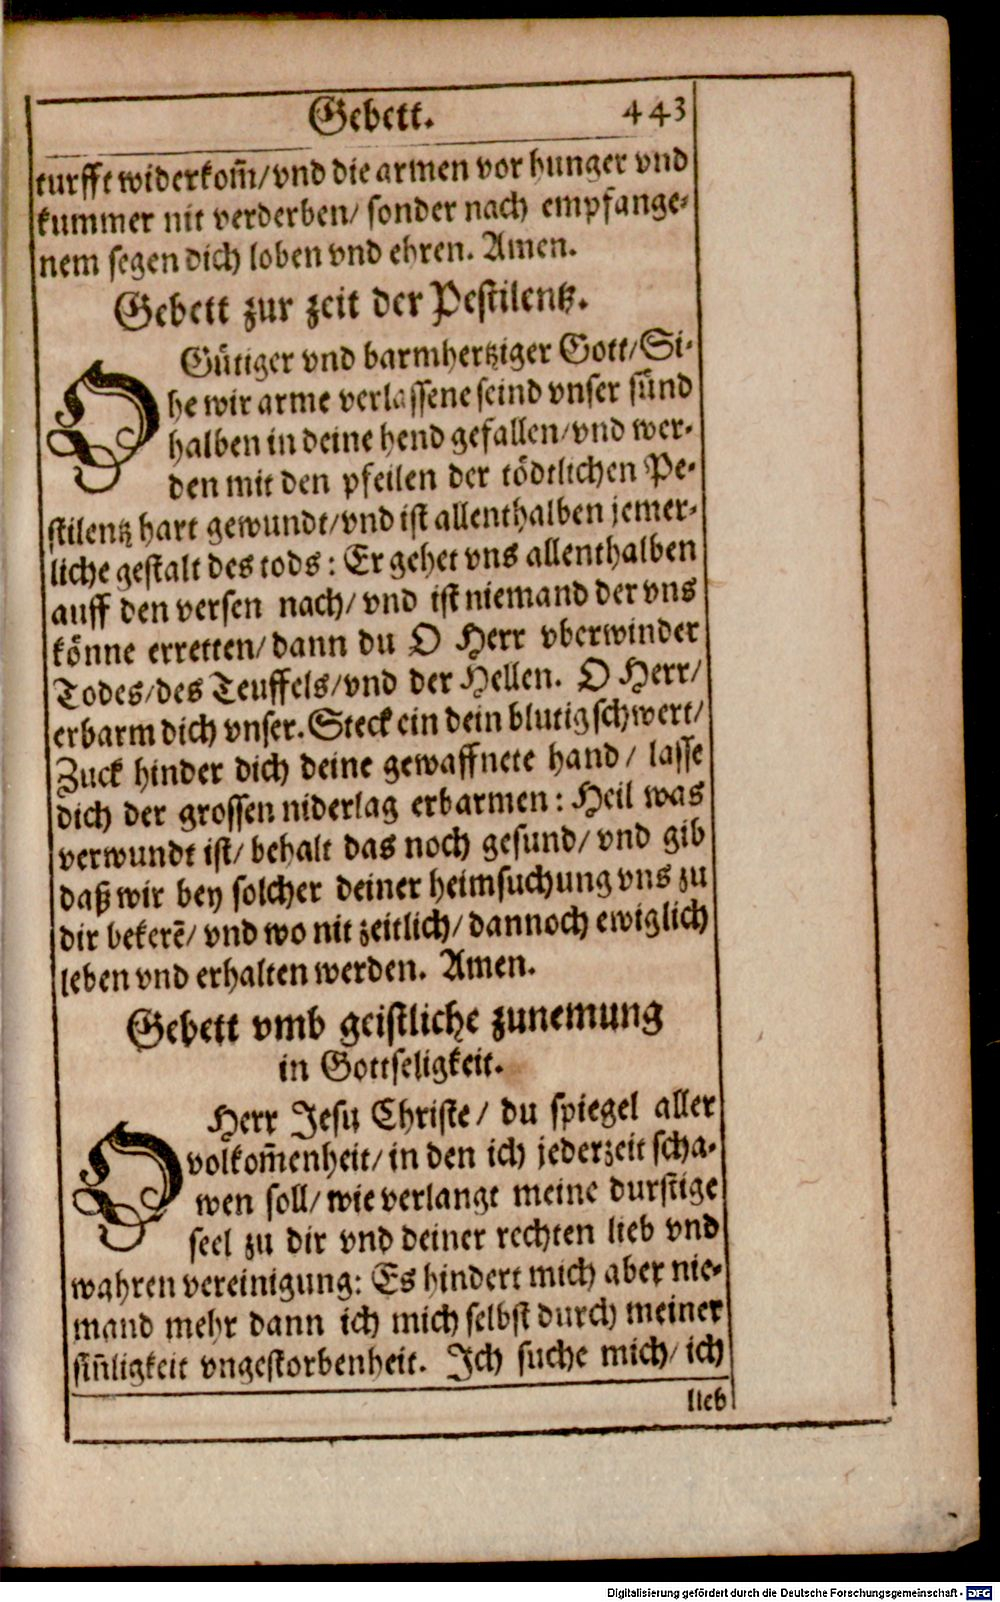 Gebett. 443
turfft widerkom̃/ vnd die armen vor hunger vnd
kummer nit verderben/ sonder nach empfange-
nem segen dich loben vnd ehren. Amen.
Gebett zur zeit der Pestilentz.
O Gütiger vnd barmhertziger Gott/ Si-
he wir arme verlassene seind vnser sünd
halben in deine hend gefallen/ vnd wer-
den mit den pfeilen der tödtlichen Pe-
stilentz hart gewundt/ vnd ist allenthalben jemer-
liche gestalt des tods: Er gehet vns allenthalben
auff den versen nach/ vnd ist niemand der vns
könne erretten/ dann du O Herr vberwinder
Todes/ des Teuffels/ vnd der Hellen. O Herr/
erbarm dich vnser. Steck ein dein blutig schwert/
Zuck hinder dich deine gewaffnete hand/ lasse
dich der grossen niderlag erbarmen: Heil was
verwundt ist/ behalt das noch gesund/ vnd gib
daß wir bey solcher deiner heimsuchung vns zu
dir bekerẽ/ vnd wo nit zeitlich/ dannoch ewiglich
leben vnd erhalten werden. Amen.
Gebett vmb geistliche zunemung
in Gottseligkeit.
O Herr Jesu Christe/ du spiegel aller
volkom̃enheit/ in den ich jederzeit scha-
wen soll/ wie verlangt meine durstige
seel zu dir vnd deiner rechten lieb vnd
wahren vereinigung: Es hindert mich aber nie-
mand mehr dann ich mich selbst durch meiner
sin̄ligkeit vngestorbenheit. Ich suche mich/ ich
lieb
Digitalisierung gefördert durch die Deutsche Forschungsgemeinschaft - DFG